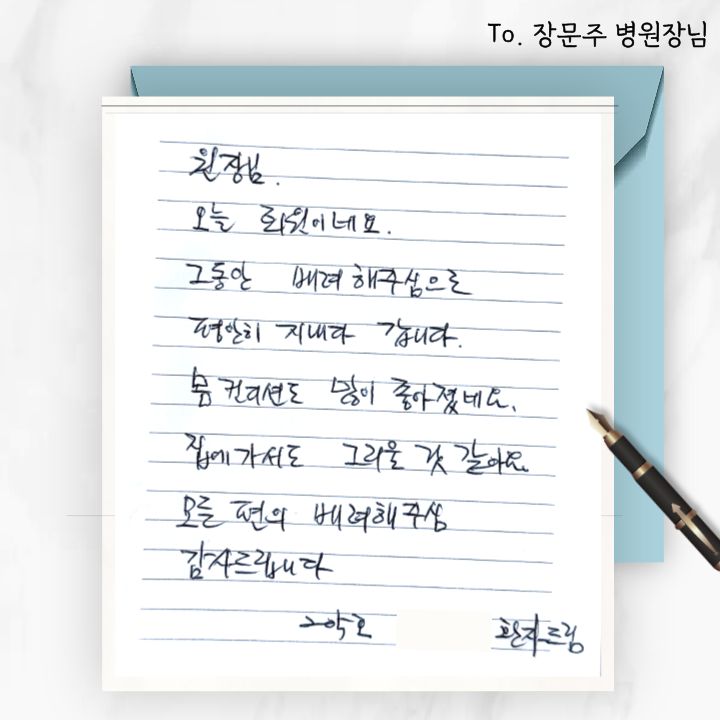 To. 장문주 병원장님
원장님.
오늘 퇴원이네요.
그동안 배려 해주심으로
평안히 지내다 갑니다.
몸 컨디션도 많이 좋아졌네요.
집에가서도 그리울 것 같아요.
모든 편의 배려해주심
감사드립니다
환자드림